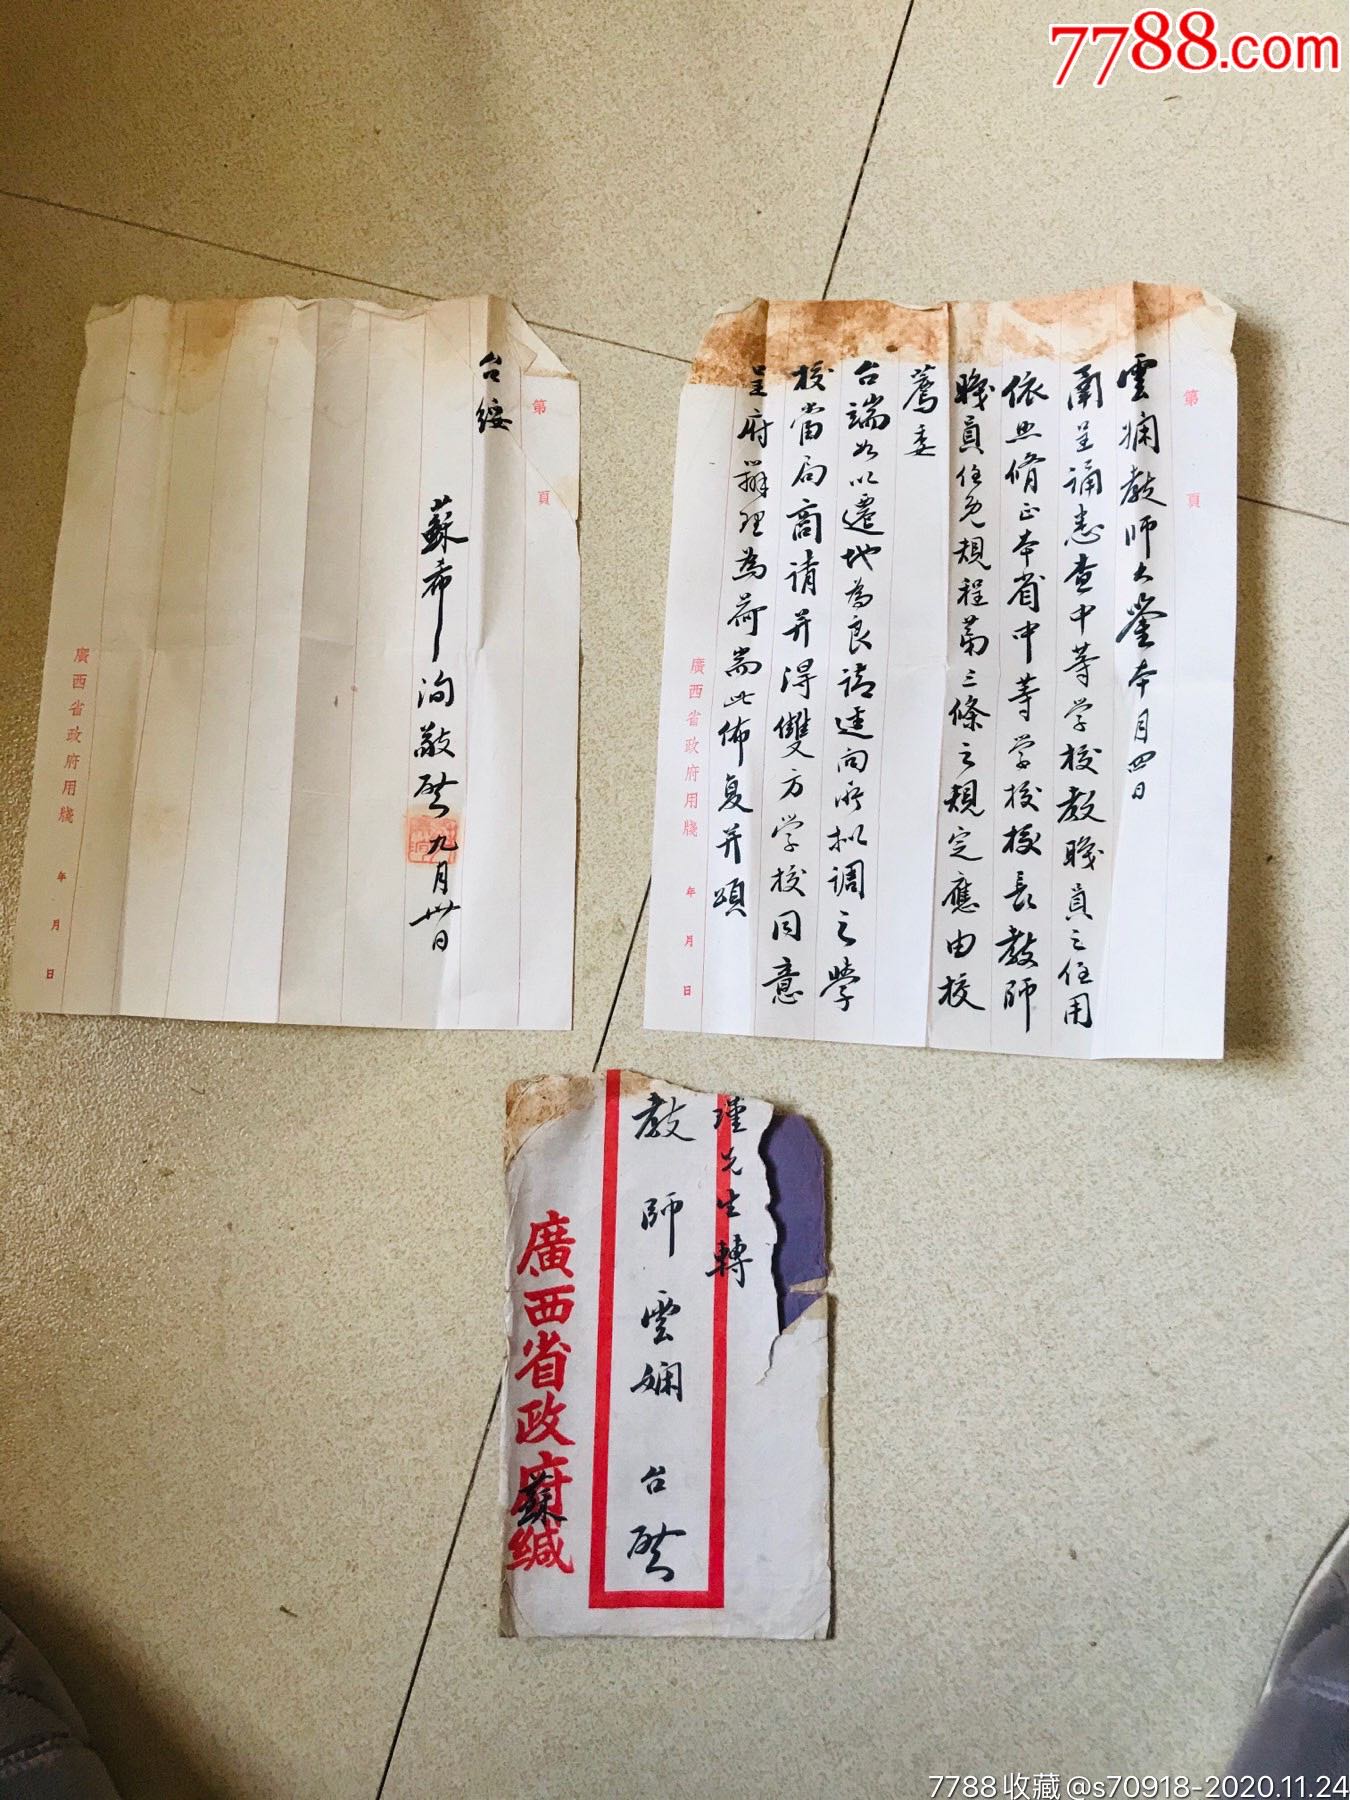 7788.com
第 頁
雲嫻教師大鑒本月四日
呈誦悉查中等学校教職員之任用
依照修正本省中等学校校長教師
職員任免規程第三條之規定應由校
薦委
台端如以遷地為良請逕向所拟調之學
校當局商請并得雙方学校同意
呈府辦理為荷耑此佈复并頌
廣西省政府用牋 年 月 日
第 頁
台綏
蘇希洵敬啓 九月卅日
廣西省政府用牋 年 月 日
瑾先生轉
教師雲嫻 台啓
廣西省政府緘
蘇
7788收藏@s70918-2020.11.24